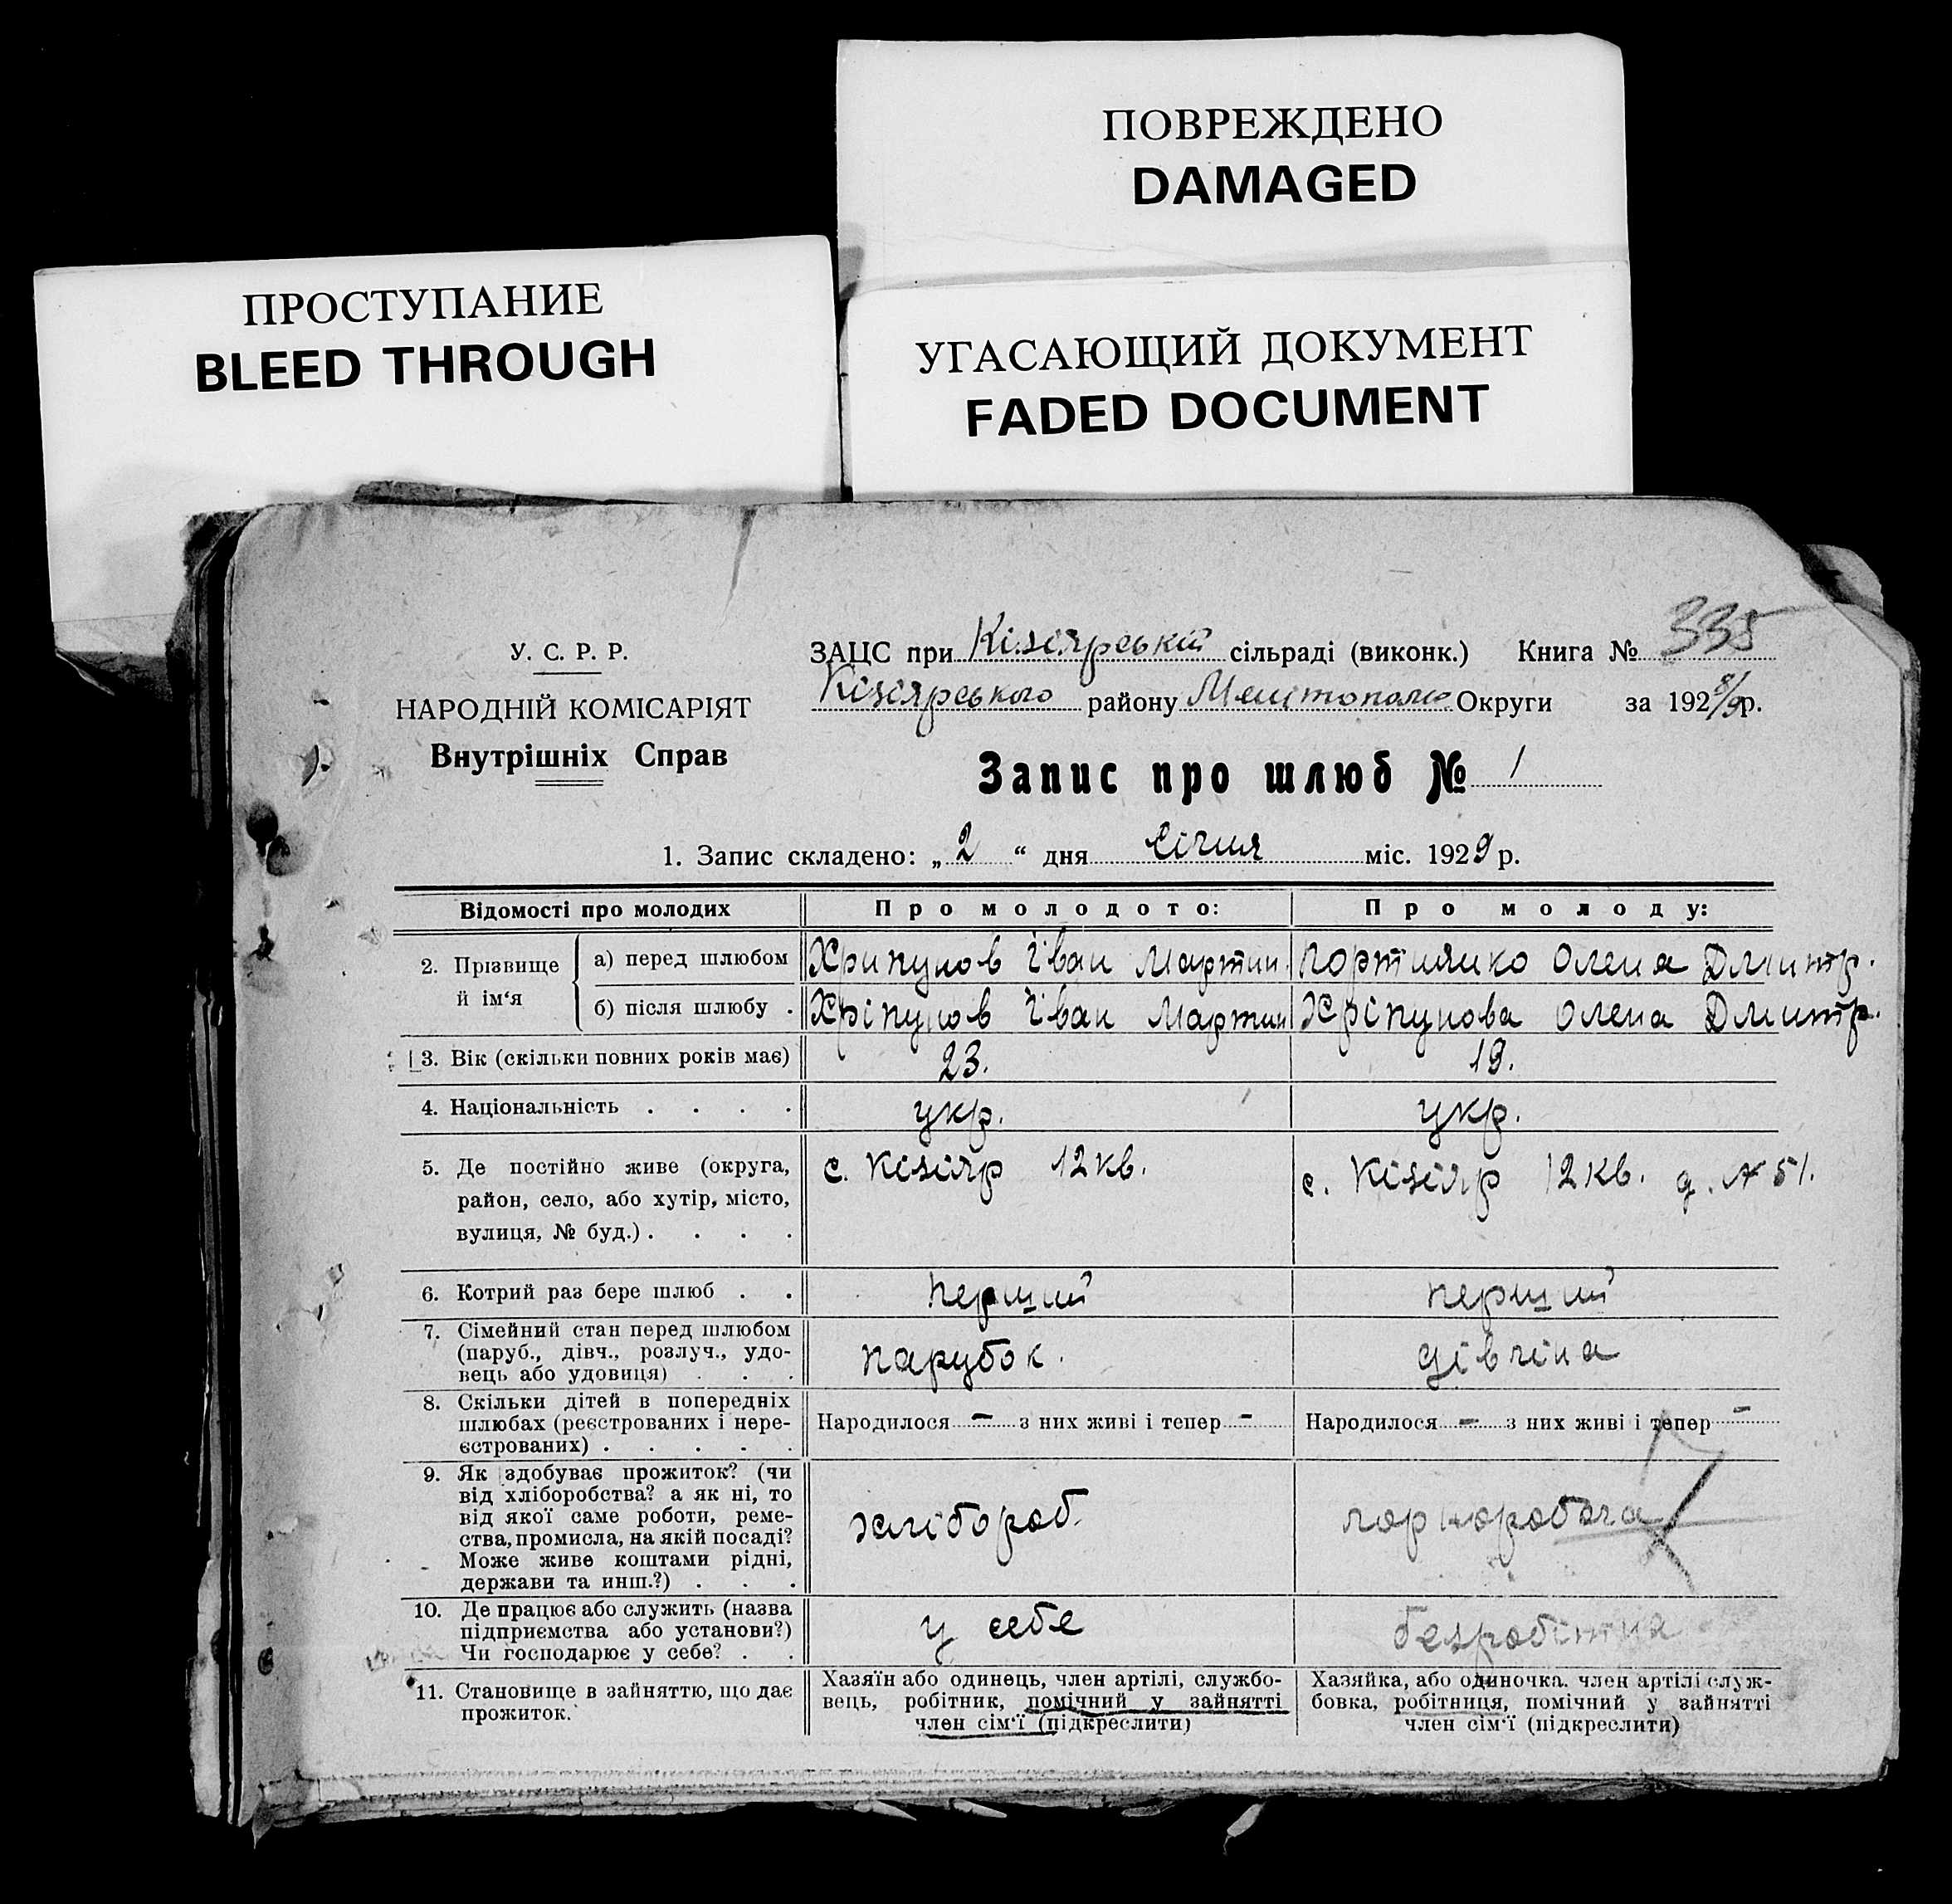 ПОВРЕЖДЕНО
DAMAGED
ПРОСТУПАНИЕ
BLEED THROUGH
УГАСАЮЩИЙ ДОКУМЕНТ
FADED DOCUMENT
У. С. Р. Р.
НАРОДНІЙ КОМІСАРІЯТ
Внутрішніх Справ
ЗАЦС при Кізіярській сільраді (виконк.) Книга № 335
Кізіярського району Мелітополь Округи за 1928/9р.
Запис про шлюб № 1
1. Запис складено: „2“ дня Січня міс. 1929 р.
Відомості про молодих
Про молодого:
Про молоду:
2. Прізвище й ім‘я
а) перед шлюбом
Хрипунов Іван Мартин.
Олена Дмитр.
б) після шлюбу .
Хріпунов Іван Мартин
Хріпунова Олена Дмитр.
3. Вік (скільки повних років має)
23.
19.
4. Національність . . . .
укр.
укр.
5. Де постійно живе (округа,
район, село, або хутір, місто,
вулиця, № буд.) . . . .
с. Кізіяр 12 кв.
с. Кізіяр 12 кв. д. № 51.
6. Котрий раз бере шлюб . .
перший
перший
7. Сімейний стан перед шлюбом
(паруб., дівч., розлуч., удо-
вець або удовиця) . . .
парубок.
дівчіна
8. Скільки дітей в попередніх
шлюбах (реєстрованих і нере-
єстрованих) . . . . .
Народилося — з них живі і тепер —
Народилося — з них живі і тепер —
9. Як здобуває прожиток? (чи
від хліборобства? а як ні, то
від якої саме роботи, реме-
ства, промисла, на якій посаді?
Може живе коштами рідні,
держави та инш.?) . . .
хлібороб.
чорноробоча
10. Де працює або служить (назва
підприємства або установи?)
Чи господарює у себе? . .
у себе
безробітна
11. Становище в зайняттю, що дає
прожиток.
Хазяїн або одинець, член артілі, службо-
вець, робітник, помічний у зайнятті
член сім‘ї (підкреслити)
Хазяйка, або одиночка. член артілі служ-
бовка, робітниця, помічний у зайнятті
член сім‘ї (підкреслити)